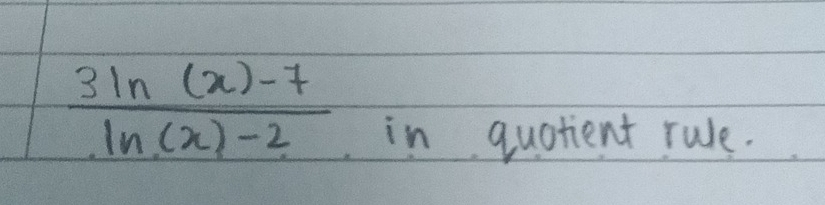 3 ln (x) - 7
ln (x) - 2 in quotient rule.